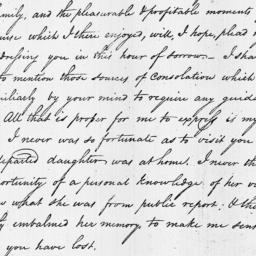 family, and the pleasurable & profitable moments
which I there enjoyed, will, I hope, plead
dressing you in this hour of sorrow. – I sha
to mention those sources of Consolation which
iliarly by your mind to require any guida
All that is proper for me to express is my
I never was so fortunate as to visit you
departed daughter was at home. I never th
ortunity of a personal knowledge of her v
what she was from public report: & the
ly embalmed her memory, to make me sens
you have lost.